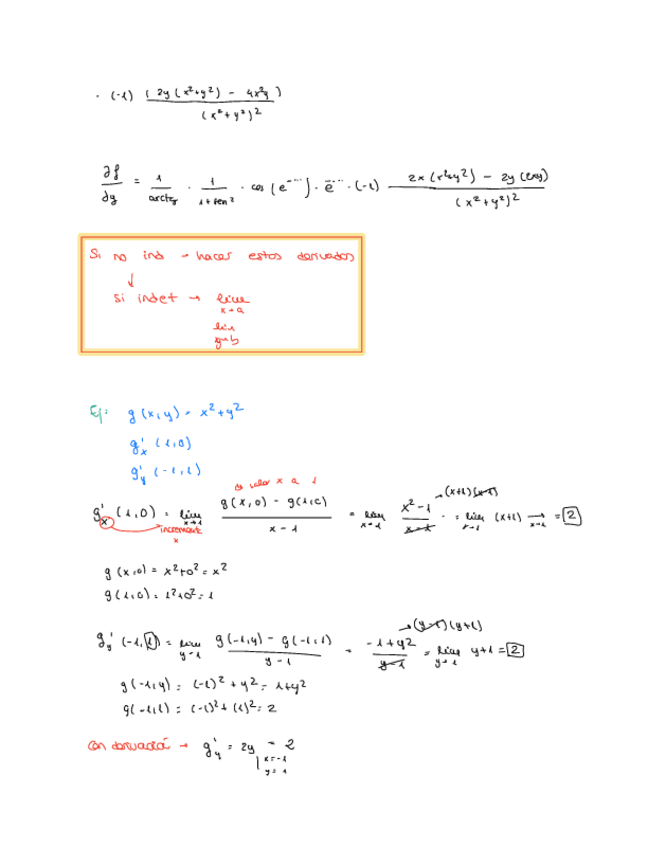 · (-1) (2y(x²+y²) - 4x²y) / (x²+y²)²
∂f/∂y = 1/arctg · 1/1+sen² · cos(e^-···) · e^-··· · (-1) 2x(x²+y²) - 2y(2xy) / (x²+y²)²
Si no ind → hacer estos derivados
↓
si indet → lim x→a
lim y→b
Ej: g(x,y) = x²+y²
g'x (1,0)
g'y (-1,1)
valor x a 1
g'x (1,0) = lim x→1 g(x,0) - g(1,0) / x-1 = lim x→1 x²-1 / x-1 → (x+1)(x-1) = lim x→1 (x+1) → x→1 = 2
incremento x
g(x,0) = x²+0² = x²
g(1,0) = 1²+0² = 1
g'y (-1,1) = lim y→1 g(-1,y) - g(-1,1) / y-1 = -1+y² / y-1 → (y-1)(y+1) = lim y→1 y+1 = 2
g(-1,y) = (-1)² + y² = 1+y²
g(-1,1) = (-1)² + (1)² = 2
Con derivación → g'y = 2y | x=-1 y=1 = 2